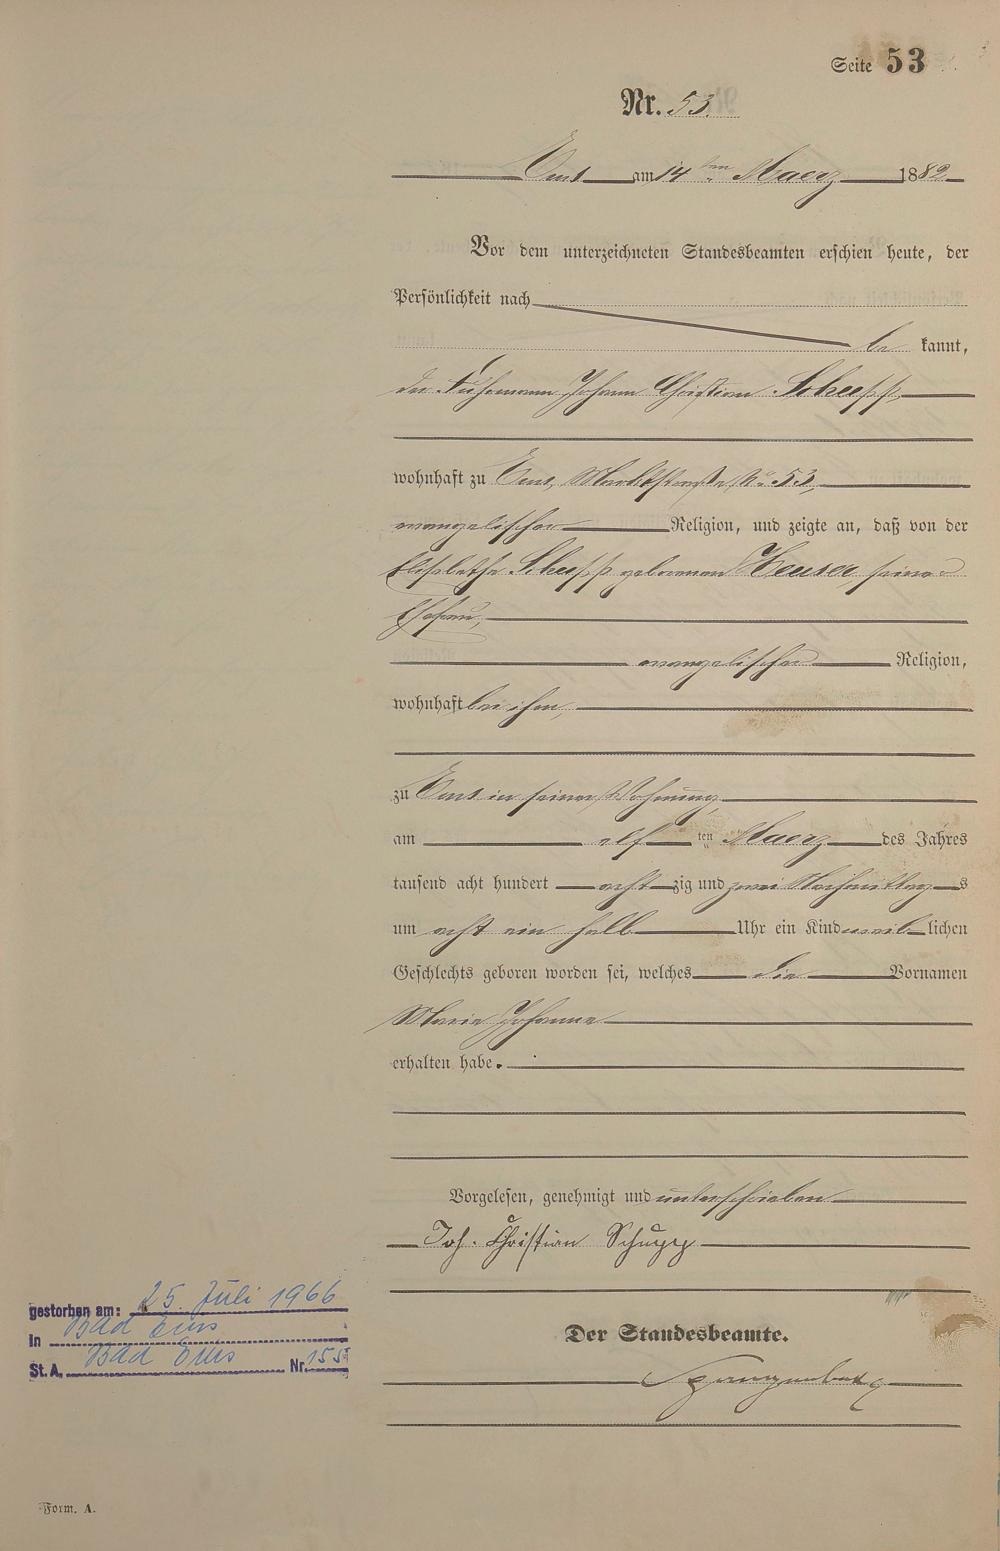 Seite 53
Nr. 53.
Ems am 14ten Maerz 1882
Vor dem unterzeichneten Standesbeamten erschien heute, der
Persönlichkeit nach
be kannt,
der Fuhrmann Johann Christian Schupp,
wohnhaft zu Ems, Marktstraße No 53,
evangelischer Religion, und zeigte an, daß von der
Elisabethe Schupp geborenen Heuser, seiner
Ehefrau,
evangelischer Religion,
wohnhaft bei ihm,
zu Ems in seiner Wohnung,
am elf ten Maerz des Jahres
tausend acht hundert acht zig und zwei Nachmittags
um acht ein halb Uhr ein Kind weib lichen
Geschlechts geboren worden sei, welches die Vornamen
Marie Johanne
erhalten habe.
Vorgelesen, genehmigt und unterschrieben
Joh. Christian Schupp
gestorben am: 25. Juli 1966
in Bad Ems
St. A. Bad Ems Nr. 155
Der Standesbeamte.
Spangenberg
Form. A.